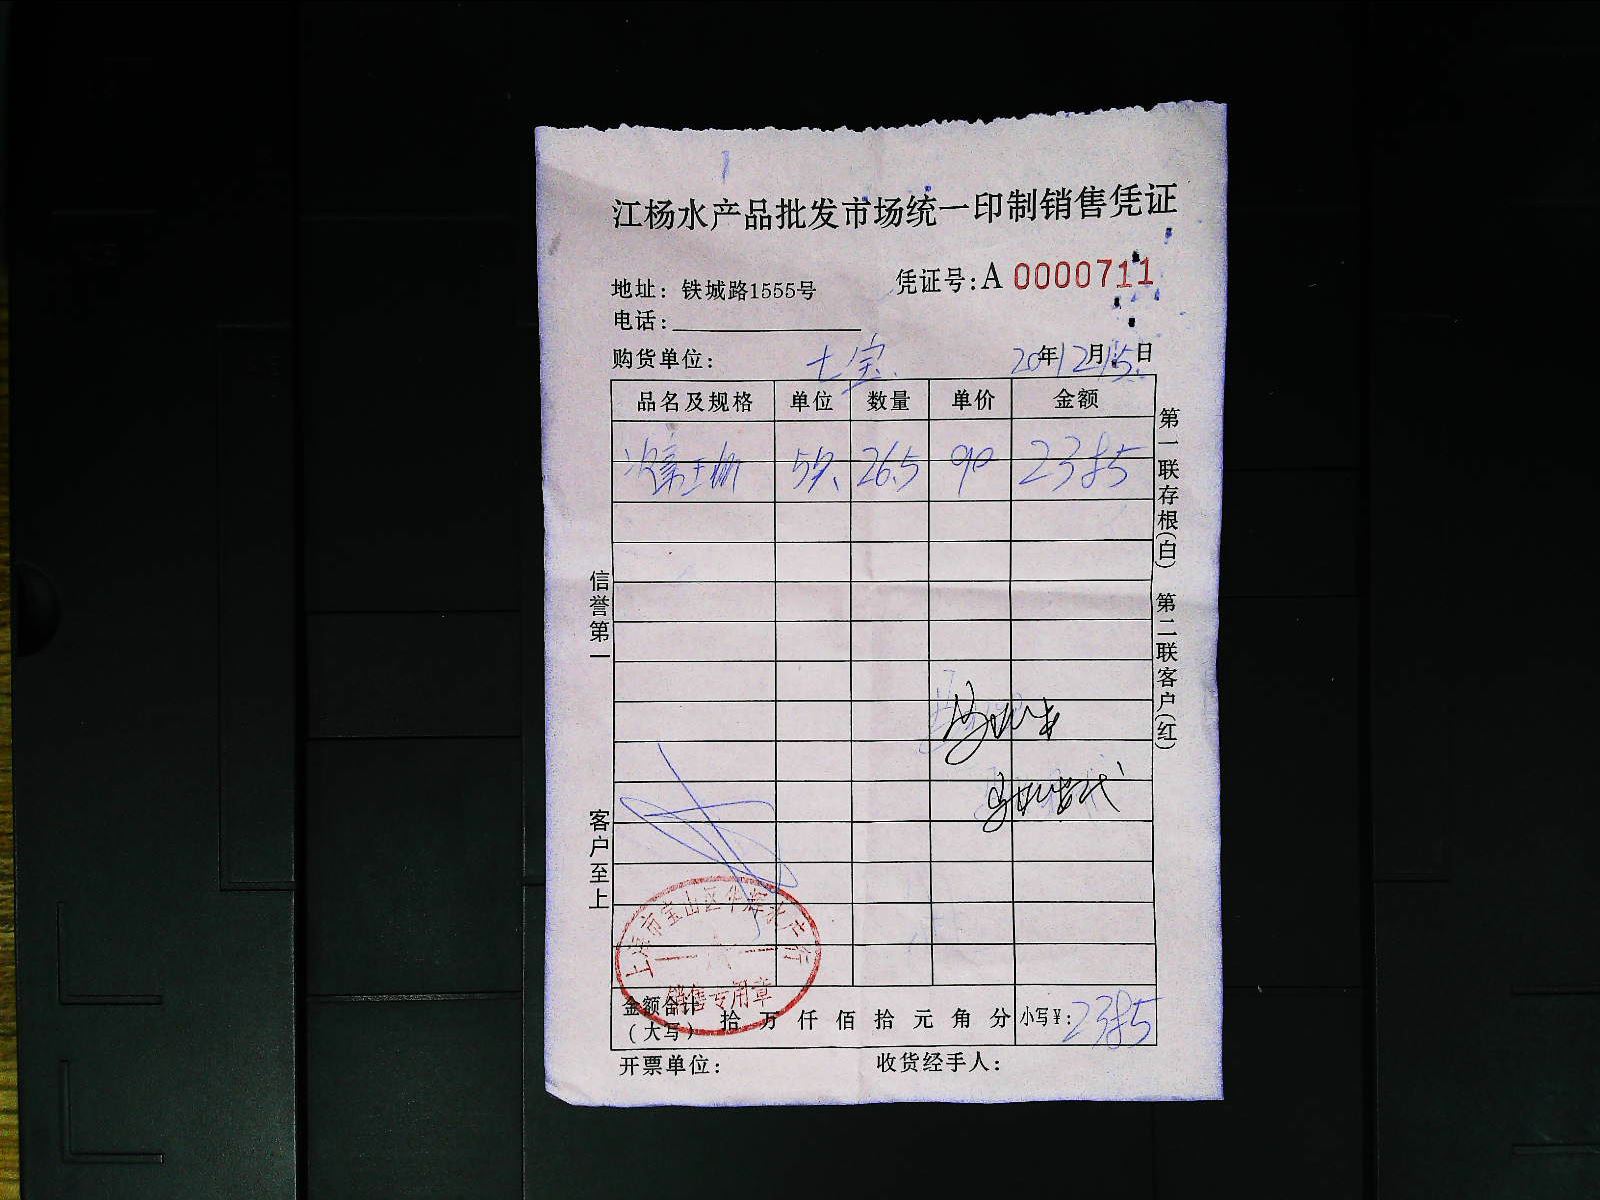 江杨水产品批发市场统一印制销售凭证
凭证号:A 0000711
地址: 铁城路1555号
电话:
购货单位: 七宝 20年12月15日
品名及规格 单位 数量 单价 金额
26.5 90 2385
第一联存根(白) 第二联客户(红)
信誉第一
客户至上
上海市宝山区华辉水产行
销售专用章
金额合计(大写) 拾 万 仟 佰 拾 元 角 分 小写¥: 2385
开票单位: 收货经手人: